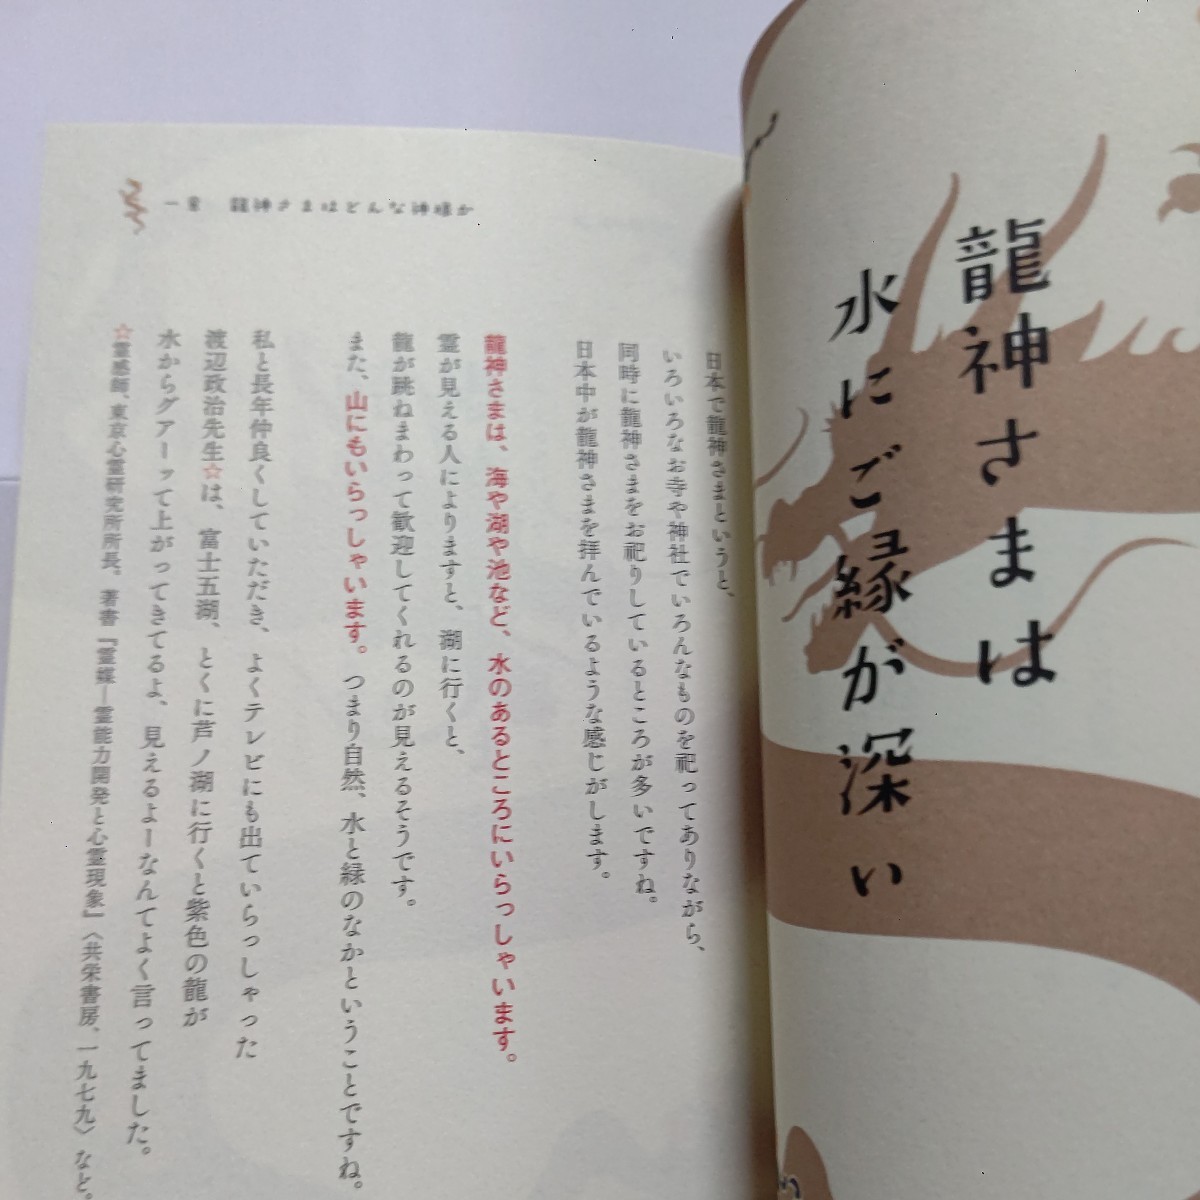 龍神さまは
水にご縁が深い
一章 龍神さまはどんな神様か
日本で龍神さまというと、
いろいろなお寺や神社でいろんなものを祀ってありながら、
同時に龍神さまをお祀りしているところが多いですね。
日本中が龍神さまを拝んでいるような感じがします。
龍神さまは、海や湖や池など、水のあるところにいらっしゃいます。
霊が見える人によりますと、湖に行くと、
龍が跳ねまわって歓迎してくれるのが見えるそうです。
また、山にもいらっしゃいます。つまり自然、水と緑のなかということですね。
私と長年仲良くしていただき、よくテレビにも出ていらっしゃった
渡辺政治先生☆は、富士五湖、とくに芦ノ湖に行くと紫色の龍が
水からグアーッて上がってきてるよ、見えるよーなんてよく言ってました。
☆霊感師、東京心霊研究所所長。著書『霊媒―霊能力開発と心霊現象』〈共栄書房、一九七九〉など。